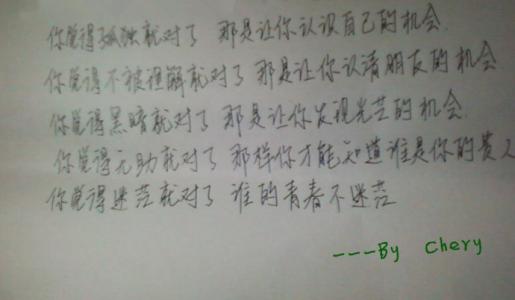 你觉得孤独就对了 那是让你认识自己的机会
你觉得不被理解就对了 那是让你认清朋友的机会
你觉得黑暗就对了 那是让你发现光芒的机会
你觉得无助就对了 那样你才能知道谁是你的贵人
你觉得迷茫就对了 谁的青春不迷茫
---By Chery